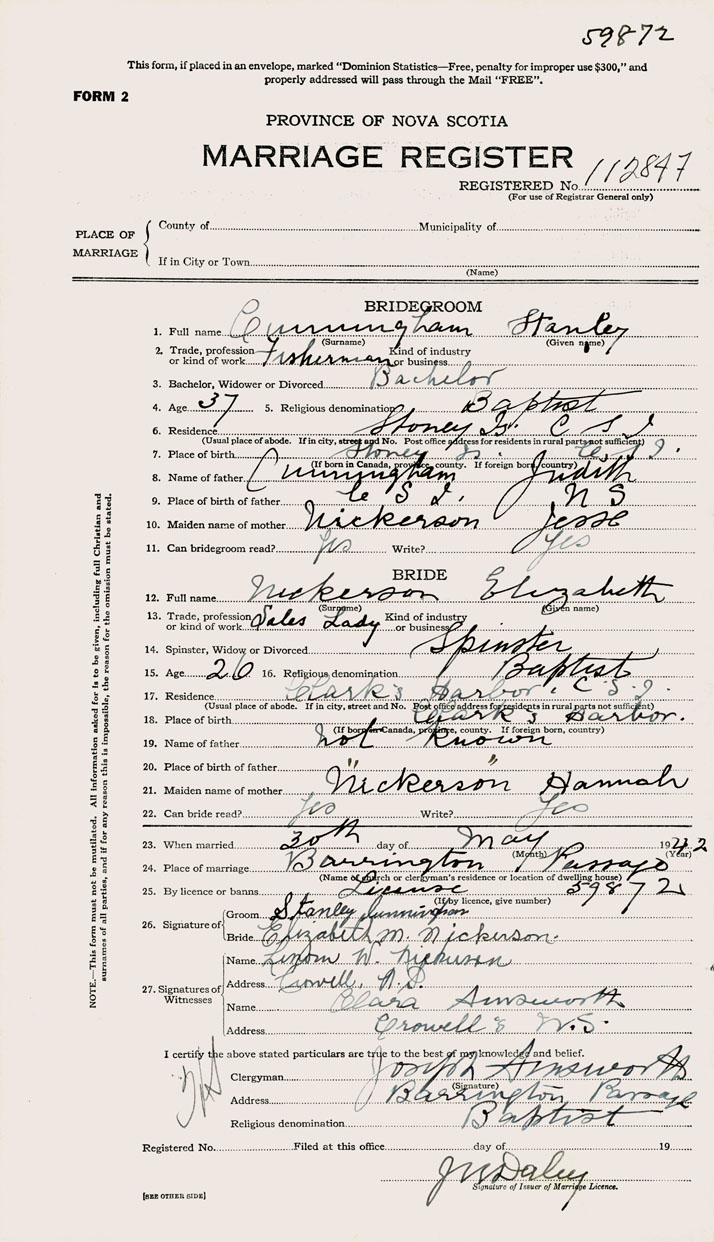 59872
This form, if placed in an envelope, marked "Dominion Statistics—Free, penalty for improper use $300," and
properly addressed will pass through the Mail "FREE".
FORM 2
PROVINCE OF NOVA SCOTIA
MARRIAGE REGISTER
REGISTERED No. 112847
(For use of Registrar General only)
PLACE OF MARRIAGE
County of Municipality of
If in City or Town
(Name)
BRIDEGROOM
1. Full name Cunningham Stanley
(Surname) (Given name)
2. Trade, profession or kind of work Fisherman Kind of industry or business
3. Bachelor, Widower or Divorced Bachelor
4. Age 37 5. Religious denomination Baptist
6. Residence Stoney Is. C S I
(Usual place of abode. If in city, street and No. Post office address for residents in rural parts not sufficient)
7. Place of birth Stoney Is. C S I.
(If born in Canada, province, county. If foreign born, country)
8. Name of father Cunningham Judith
9. Place of birth of father C S I. N S
10. Maiden name of mother Nickerson Jesse
11. Can bridegroom read? Yes Write? Yes
BRIDE
12. Full name Nickerson Elizabeth
(Surname) (Given name)
13. Trade, profession or kind of work Sales Lady Kind of industry or business
14. Spinster, Widow or Divorced Spinster
15. Age 26 16. Religious denomination Baptist
17. Residence Clark's Harbor, C S I
(Usual place of abode. If in city, street and No. Post office address for residents in rural parts not sufficient)
18. Place of birth Clark's Harbor.
(If born in Canada, province, county. If foreign born, country)
19. Name of father not known
20. Place of birth of father " "
21. Maiden name of mother Nickerson Hannah
22. Can bride read? Yes Write? Yes
23. When married 30th day of May 1942
(Month) (Year)
24. Place of marriage Barrington Passage
(Name of church or clergyman's residence or location of dwelling house)
25. By licence or banns License 59872
(If by licence, give number)
26. Signature of
Groom Stanley Cunningham
Bride Elizabeth M. Nickerson.
27. Signatures of Witnesses
Name W. Nickerson
Address Crowell, N.S.
Name Clara Ainsworth
Address Crowell N.S.
I certify the above stated particulars are true to the best of my knowledge and belief.
Clergyman Joseph Ainsworth
(Signature)
Address Barrington Passage
Religious denomination Baptist
Registered No. Filed at this office day of 19
Daley
Signature of Issuer of Marriage Licence.
[SEE OTHER SIDE]
NOTE.—This form must not be mutilated. All information asked for is to be given, including full Christian and
surnames of all parties, and if for any reason this is impossible, the reason for the omission must be stated.